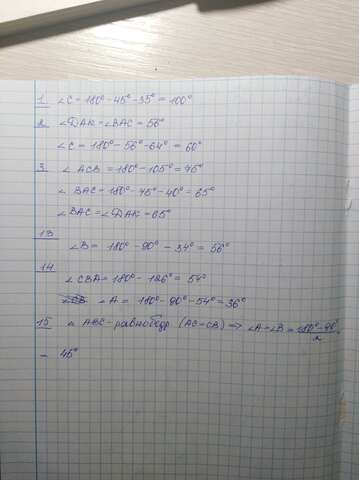 1. ∠C = 180° - 45° - 35° = 100°
2. ∠DAK = ∠BAC = 56°
∠C = 180° - 56° - 64° = 60°
3. ∠ACB = 180° - 105° = 75°
∠BAC = 180° - 75° - 40° = 65°
∠BAC = ∠DAK = 65°
13
∠B = 180° - 90° - 34° = 56°
14
∠CBA = 180° - 126° = 54°
∠A = 180° - 90° - 54° = 36°
15 ▵ ABC - равнобедр (AC = CB) => ∠A = ∠B = 180° - 90° / 2
= 45°